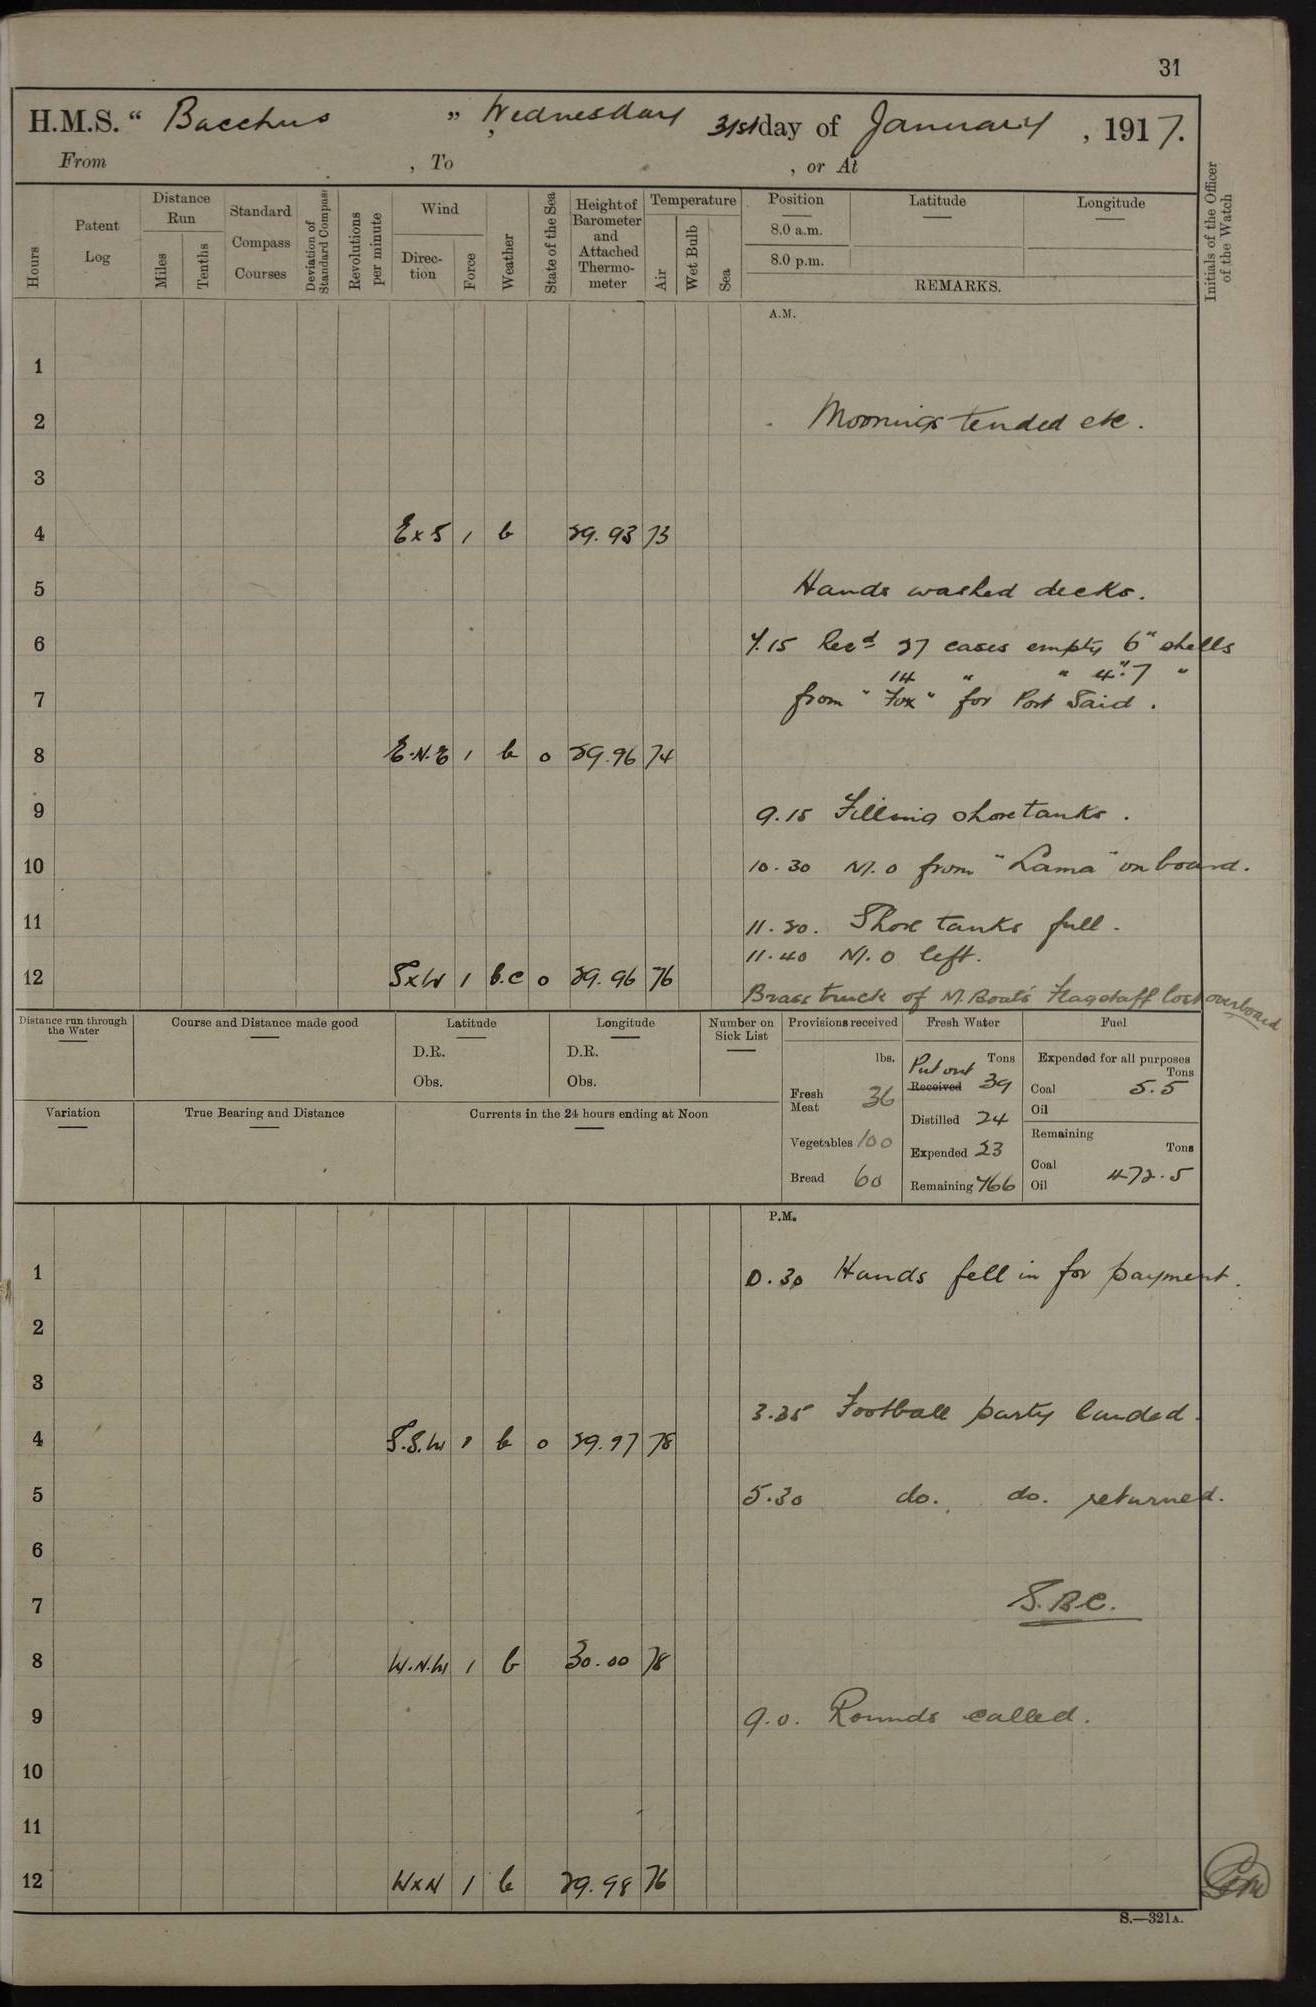 31
H.M.S. " Bacchus " Wednesday 31st day of January , 1917.
From , To , or At
Hours
Patent Log
Distance Run
Miles
Tenths
Standard Compass Courses
Deviation of Standard Compass
Revolutions per minute
Wind
Direction
Force
Weather
State of the Sea
Height of Barometer and Attached Thermometer
Temperature
Air
Wet Bulb
Sea
Position Latitude Longitude
8.0 a.m.
8.0 p.m.
REMARKS.
Initials of the Officer of the Watch
A.M.
1
2 Moorings tended etc.
3
4 E x S 1 b 29.93 73
5 Hands washed decks.
6 7.15 Recd 27 cases empty 6" shells
14 " " 4".7 "
7 from "Fox" for Port Said.
8 E.N.E 1 b 0 29.96 74
9 9.15 Filling shore tanks.
10 10.30 M.O from "Lama" on board.
11 11.20. Shore tanks full.
11.40 M.O left.
12 S x W 1 b.c 0 29.96 76
Brass truck of M. Boat's Flagstaff lost overboard
Distance run through the Water
Course and Distance made good
Latitude
D.R.
Obs.
Longitude
D.R.
Obs.
Number on Sick List
Provisions received
lbs.
Fresh Meat 36
Vegetables 100
Bread 60
Fresh Water
Tons
Put out
Received 39
Distilled 24
Expended 23
Remaining 766
Fuel
Expended for all purposes
Tons
Coal 5.5
Oil
Remaining
Tons
Coal 472.5
Oil
Variation
True Bearing and Distance
Currents in the 24 hours ending at Noon
P.M.
1 0.30 Hands fell in for payment.
2
3
3.25 Football party landed.
4 S.S.W 1 b 0 29.97 78
5 5.30 do. do. returned.
6
7 S.B.C.
8 W.N.W 1 b 30.00 78
9 9.0. Rounds called.
10
11
12 W x N 1 b 29.98 76
S.—321A.